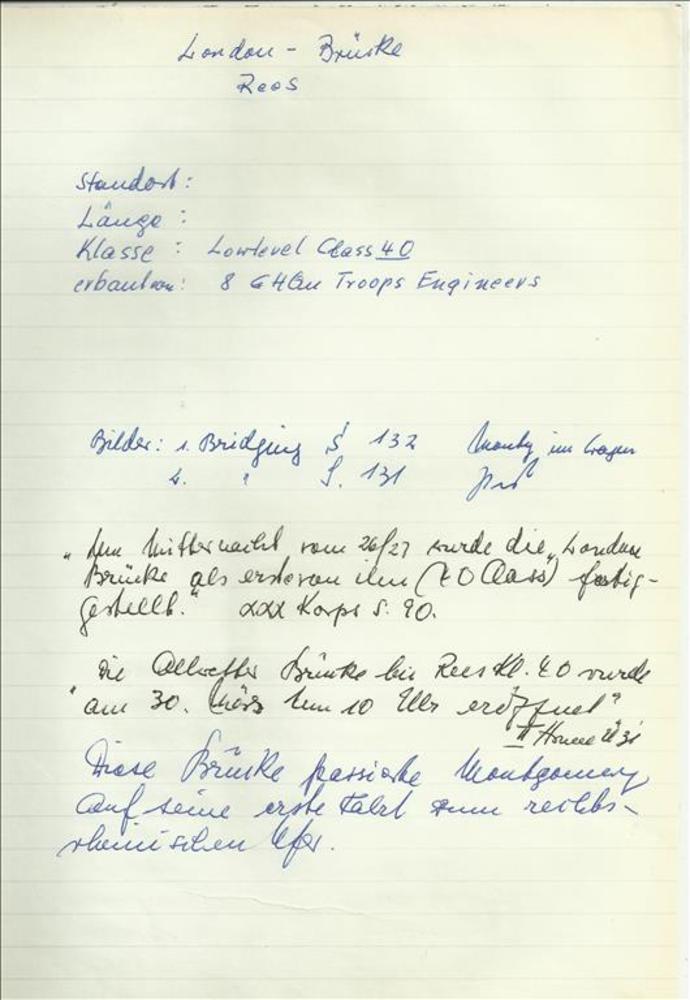 London - Brücke
Rees
Standort:
Länge :
Klasse : Lowlevel Class 40
erbaut von: 8 GHQu Troops Engineers
Bilder: 1. Bridging S 132 Monty im Wagen
2. " S. 131
"Um Mitternacht vom 26/27 wurde die "London
Brücke als erste von ihm (40 Class) fertig-
gestellt." XXX Korps S. 90.
Die Allwetter Brücke bei Rees Kl. 40 wurde
"am 30. März um 10 Uhr eröffnet"
II
Diese Brücke passierte Montgomery
auf seine erste Fahrt zum rechts-
rheinischen Ufer.